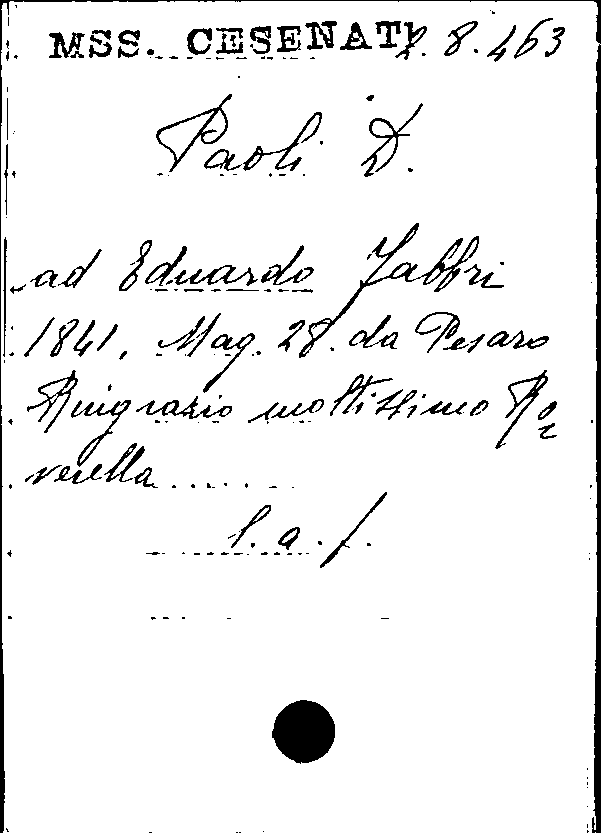 MSS. CESENATI 2.8.463
Paoli D.
ad Eduardo Fabbri
1841, Mag. 28. da Pesaro
Ringrazio moltissimo Ro=
verella.......
l. a. f.